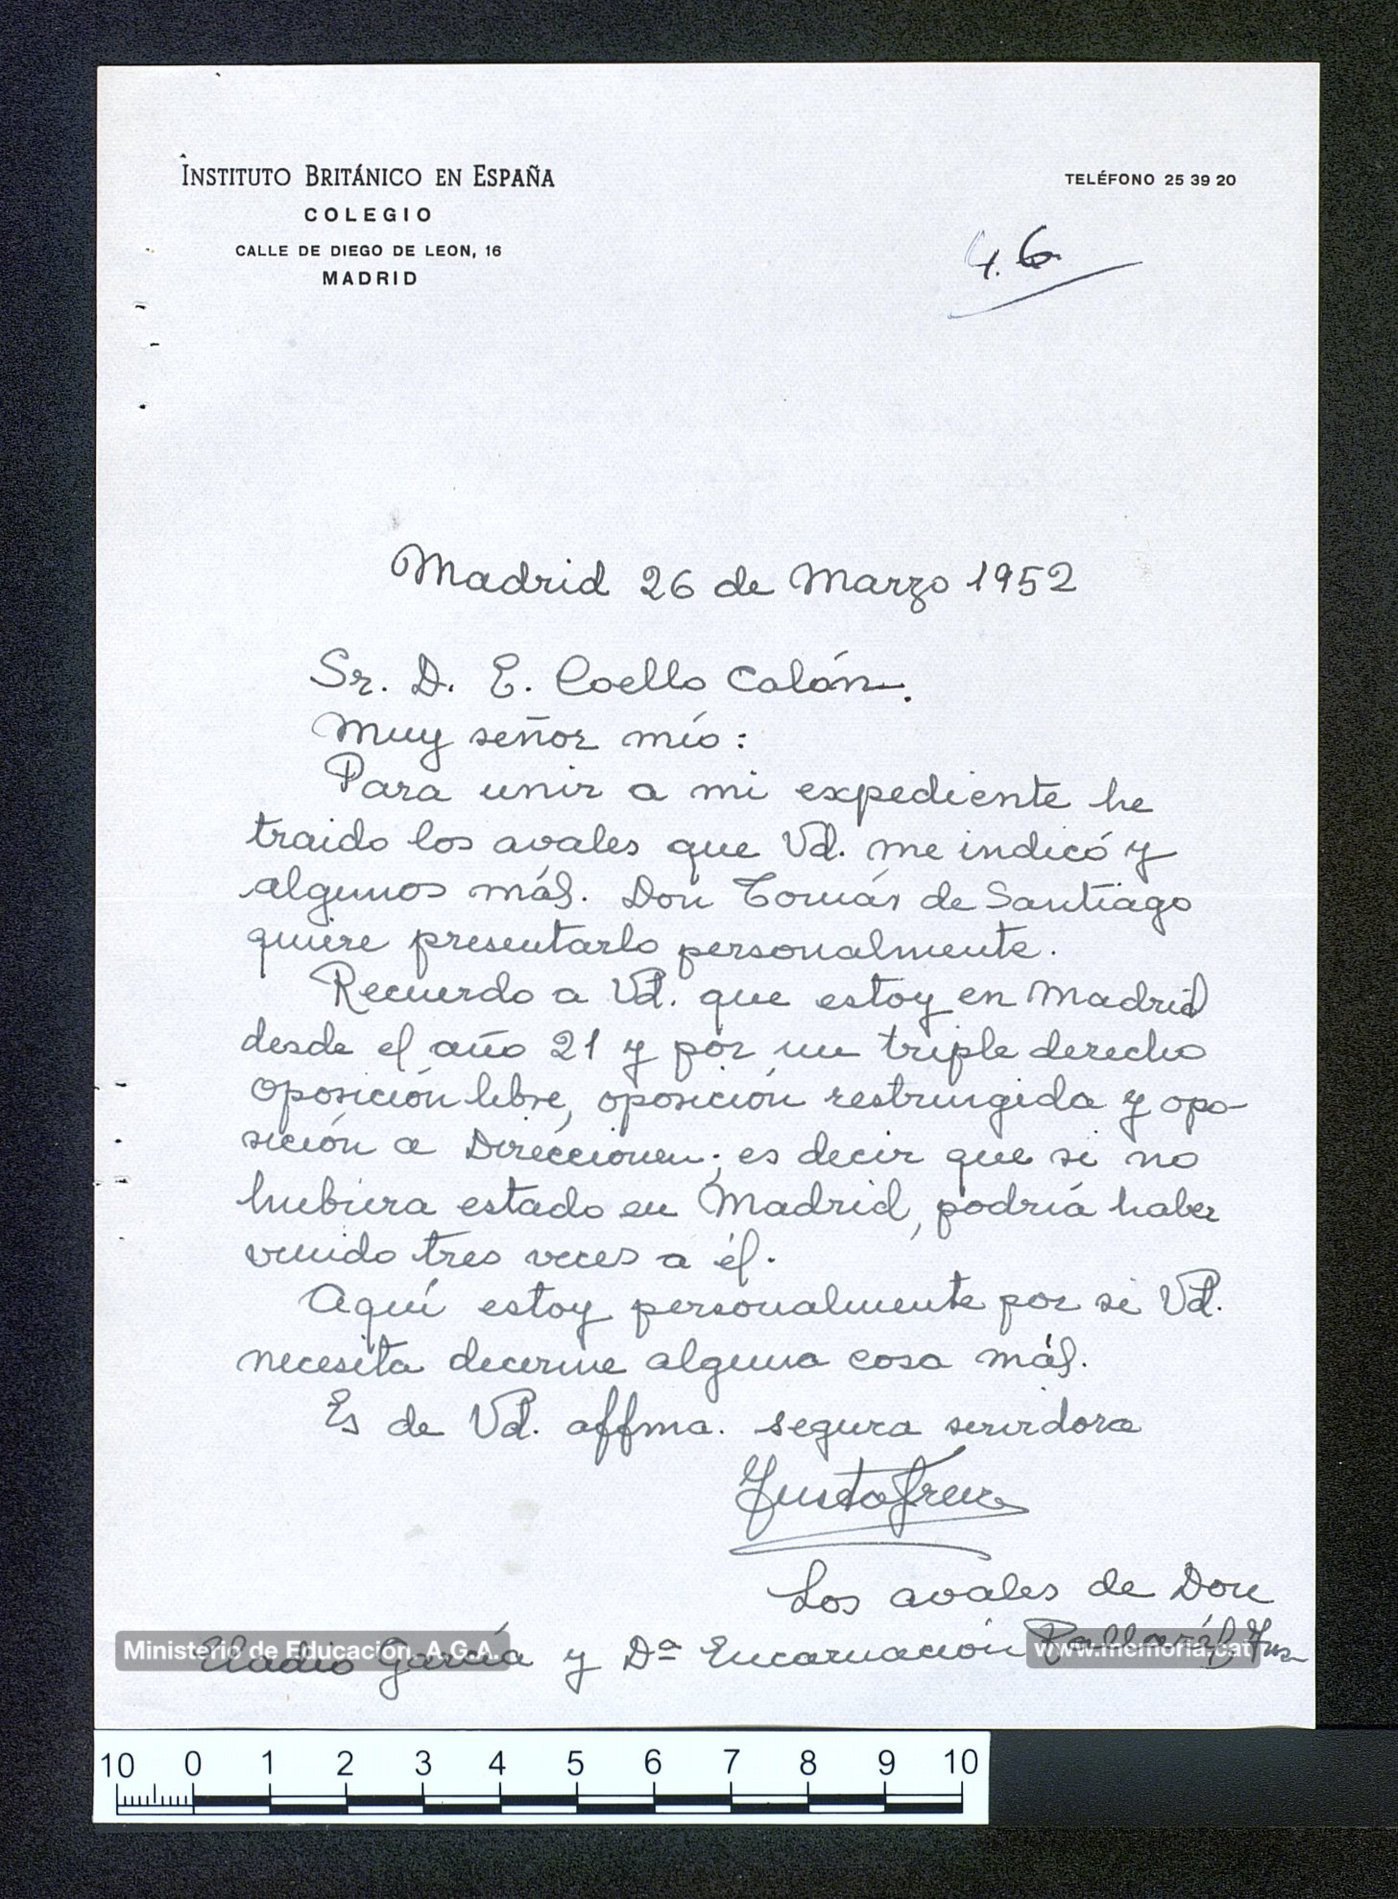 INSTITUTO BRITÁNICO EN ESPAÑA
COLEGIO
CALLE DE DIEGO DE LEON, 16
MADRID
TELÉFONO 25 39 20
4.6
Madrid 26 de Marzo 1952
Sr. D. E. Coello Calón.
Muy señor mío:
Para unir a mi expediente he
traido los avales que Vd. me indicó y
algunos más. Don Tomás de Santiago
quiere presentarlo personalmente.
Recuerdo a Vd. que estoy en Madrid
desde el año 21 y por un triple derecho
oposición libre, oposición restringida y opo-
sición a Direcciones; es decir que si no
hubiera estado en Madrid, podría haber
venido tres veces a él.
Aquí estoy personalmente por si Vd.
necesita decirme alguna cosa más.
Es de Vd. affma. segura servidora
Justa Freire
Los avales de Don
Eladio García y Dª Encarnación Pallarés
Ministerio de Educación. A.G.A.
www.memoria.cat
10 0 1 2 3 4 5 6 7 8 9 10